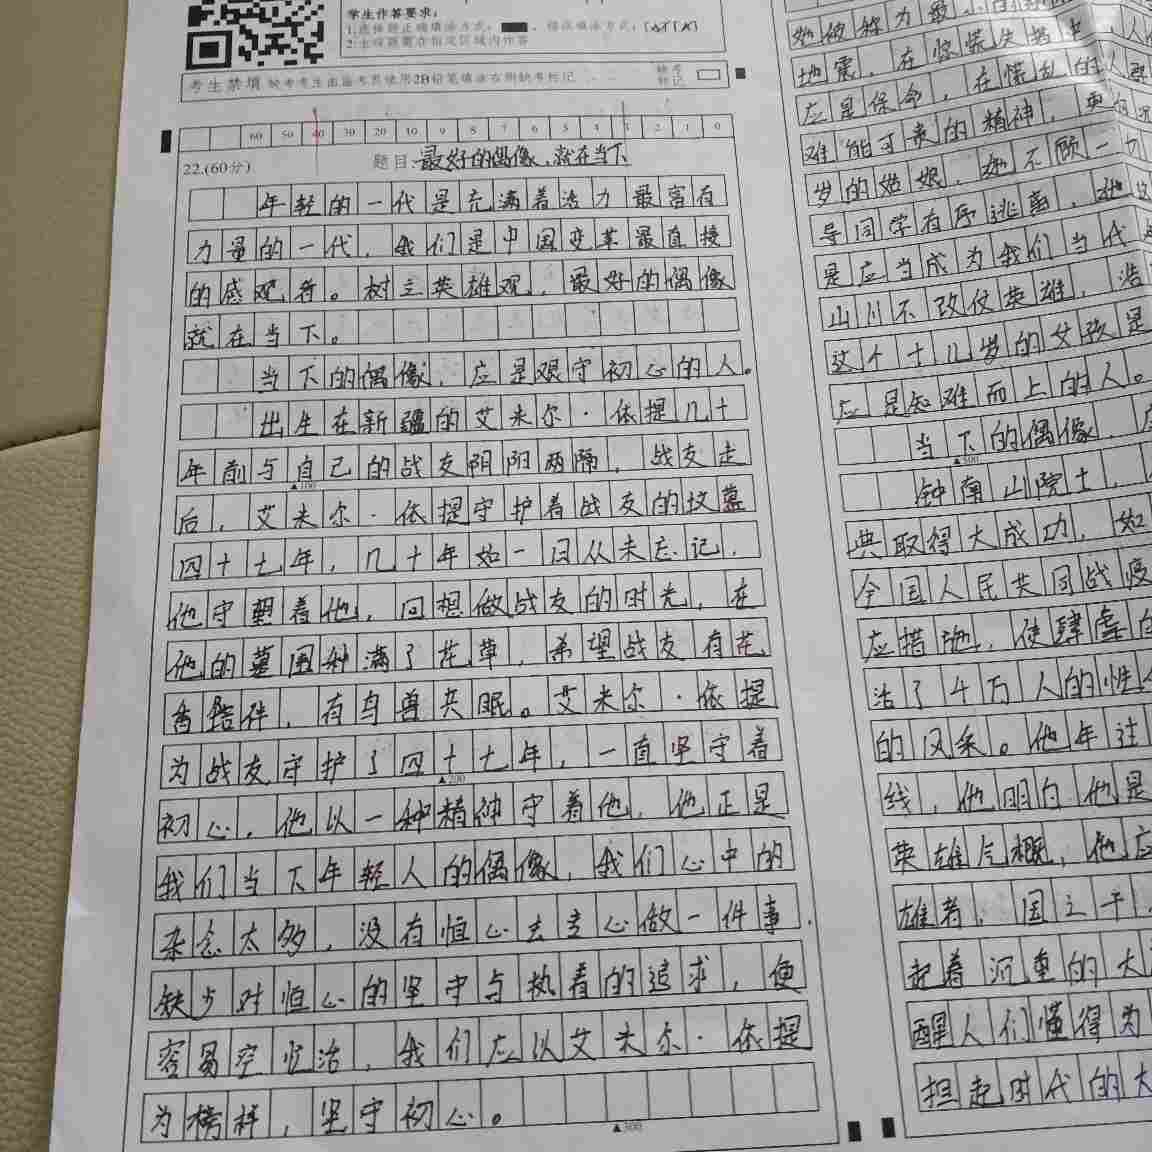 学生作答要求:
考生禁填 缺考考生由监考员使用2B铅笔填涂右侧缺考标记
缺考
标记
60 50 40 30 20 10 9 8 7 6 5 4 3 2 1 0
22.(60分)
题目 最好的偶像,就在当下
年轻的一代是充满着活力最富有
力量的一代,我们是中国变革最直接
的感观者。树立英雄观,最好的偶像
就在当下。
当下的偶像,应是艰守初心的人。
出生在新疆的艾米尔·依提几十
年前与自己的战友阴阳两隔,战友走
▲100
后,艾米尔·依提守护着战友的坟墓
四十七年,几十年如一日从未忘记,
他守望着他,回想做战友的时光,在
他的墓园种满了花草,希望战友有花
香陪伴,有鸟兽共眠。艾米尔·依提
为战友守护了四十七年,一直坚守着
▲200
初心,他以一种精神守着他,他正是
我们当下年轻人的偶像,我们心中的
杂念太多,没有恒心去专心做一件事,
缺少对恒心的坚守与执着的追求,便
容易空 ,我们应以艾米尔·依提
为榜样,坚守初心。
▲300
她被称为最
地震,在惊慌失措中,人
应是保命,在慌乱的人群
难能可贵的精神,
岁的姑娘,她不顾一切
导同学有序逃离,她
是应当成为我们当代
山川不改仗英雄,浩
这个十几岁的女孩是
应是知难而上的人。
当下的偶像,应
▲500
钟南山院士,
典取得大成功,如
全国人民共同战疫
应措施,使肆虐的
活了千万人的性命
的风采。他年过
线,他明白他是
英雄气概,他应
雄者,国之干
起着沉重的大
醒人们懂得为
担起时代的大